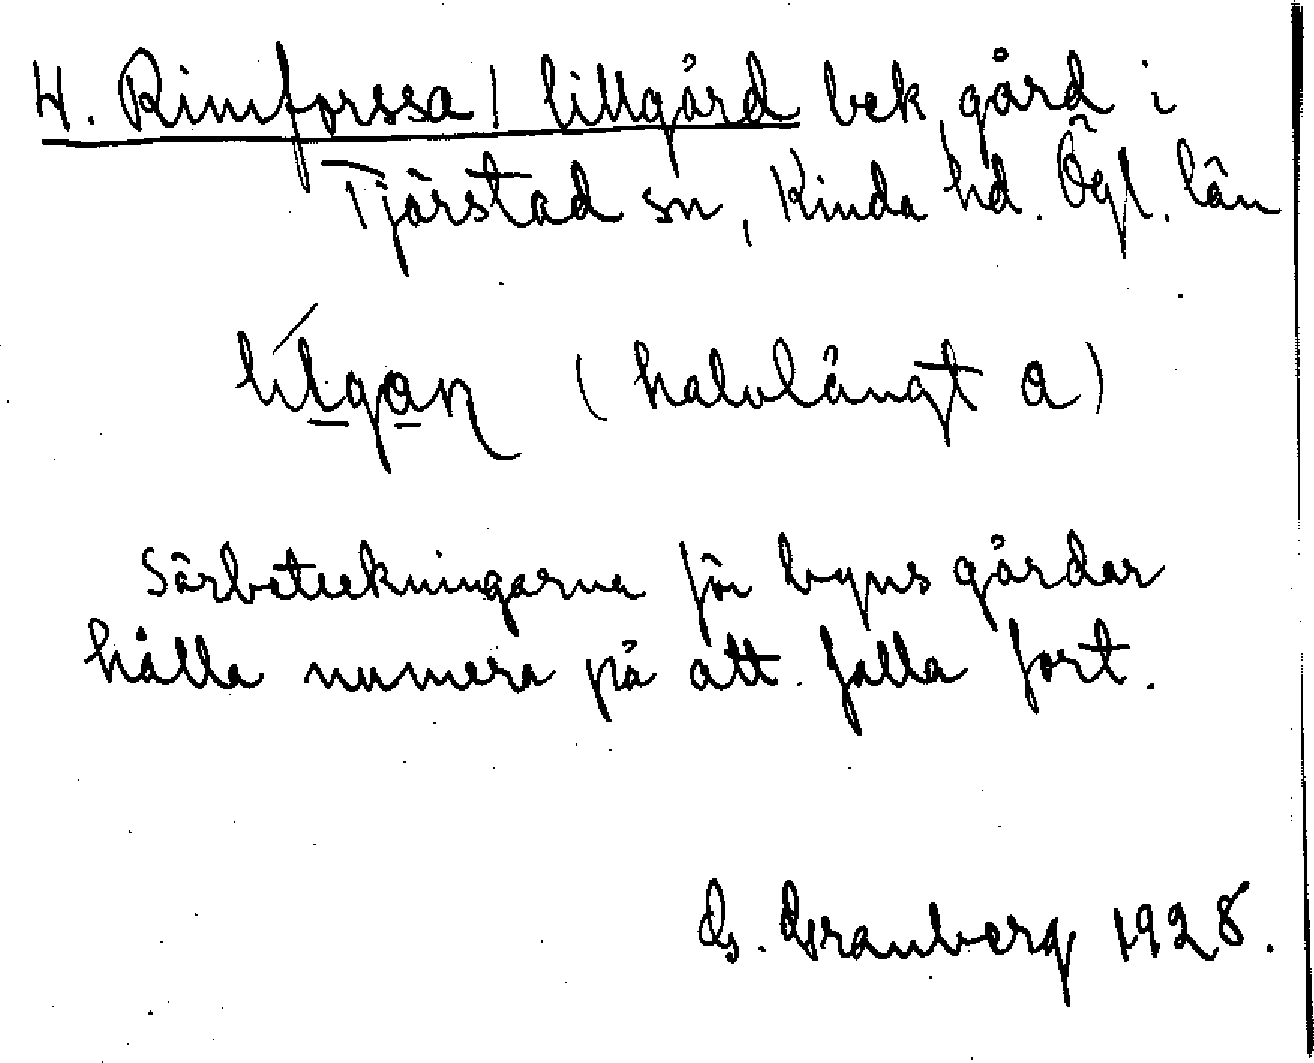 H. Rimforssa / lillgård bek. gård i
Tjärstad sn, Kinda hd. Ögl. län
lílgaɳ (halvlångt a)
Särbeteckningarna för byns gårdar
hålla numera på att falla fort.
G. Granberg 1928.